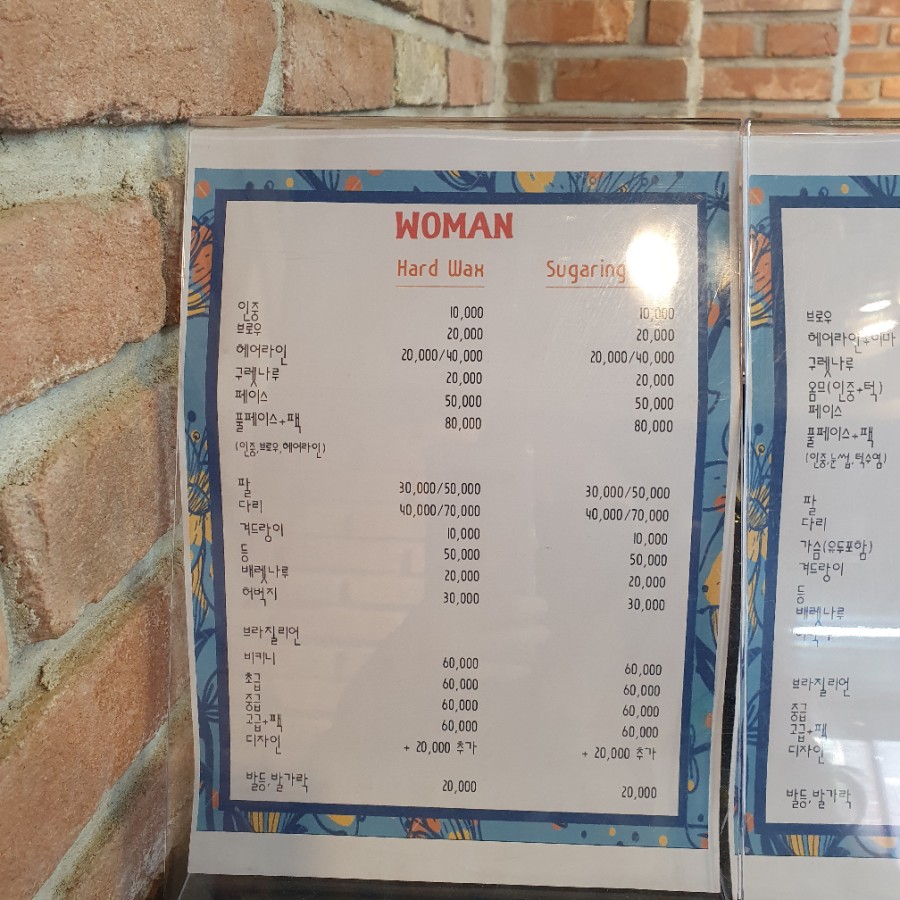 WOMAN
Hard Wax Sugaring
인중 10,000 10,000
브로우 20,000 20,000
헤어라인 20,000/40,000 20,000/40,000
구렛나루 20,000 20,000
페이스 50,000 50,000
풀페이스+팩 80,000 80,000
(인중,브로우,헤어라인)
팔 30,000/50,000 30,000/50,000
다리 40,000/70,000 40,000/70,000
겨드랑이 10,000 10,000
등 50,000 50,000
배렛나루 20,000 20,000
허벅지 30,000 30,000
브라질리언
비키니 60,000 60,000
초급 60,000 60,000
중급 60,000 60,000
고급+팩 60,000 60,000
디자인 + 20,000 추가 + 20,000 추가
발등,발가락 20,000 20,000
브로우
헤어라인+이마
구렛나루
옴므(인중+턱)
페이스
풀페이스+팩
(인중,눈썹,턱수염)
팔
다리
가슴(유두포함)
겨드랑이
등
배렛나루
브라질리언
중급
고급+팩
디자인
발등,발가락